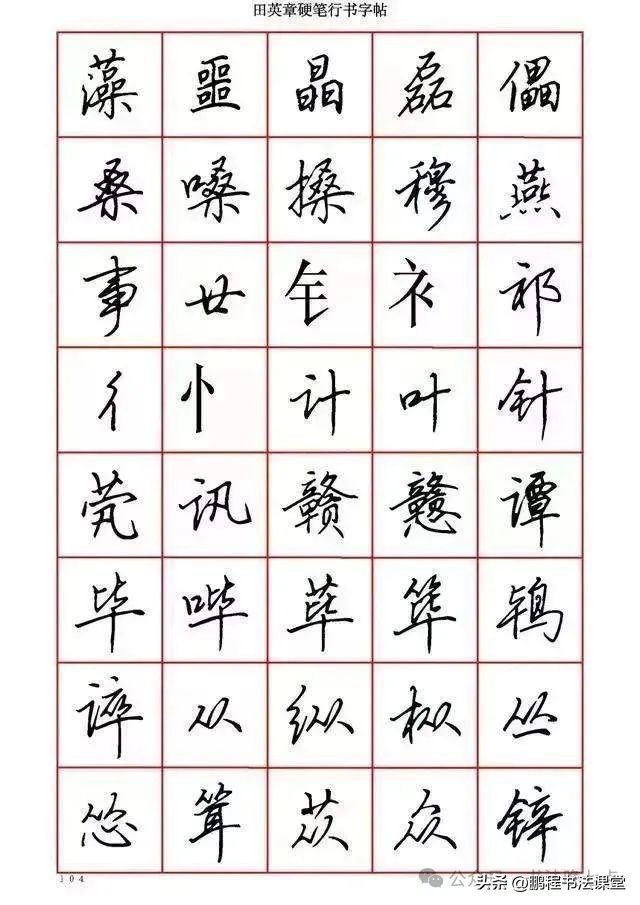 田英章硬笔行书字帖
藻 噩 晶 磊 儡
桑 嗓 搡 穆 燕
事 廿 衤 祁
彳 忄 计 叶 针
茕 讯 赣 戆 谭
毕 哔 荜 筚 鸨
谇 从 纵 枞 丛
怂 耸 苁 众 锌
104
头条@鹏程书法课堂